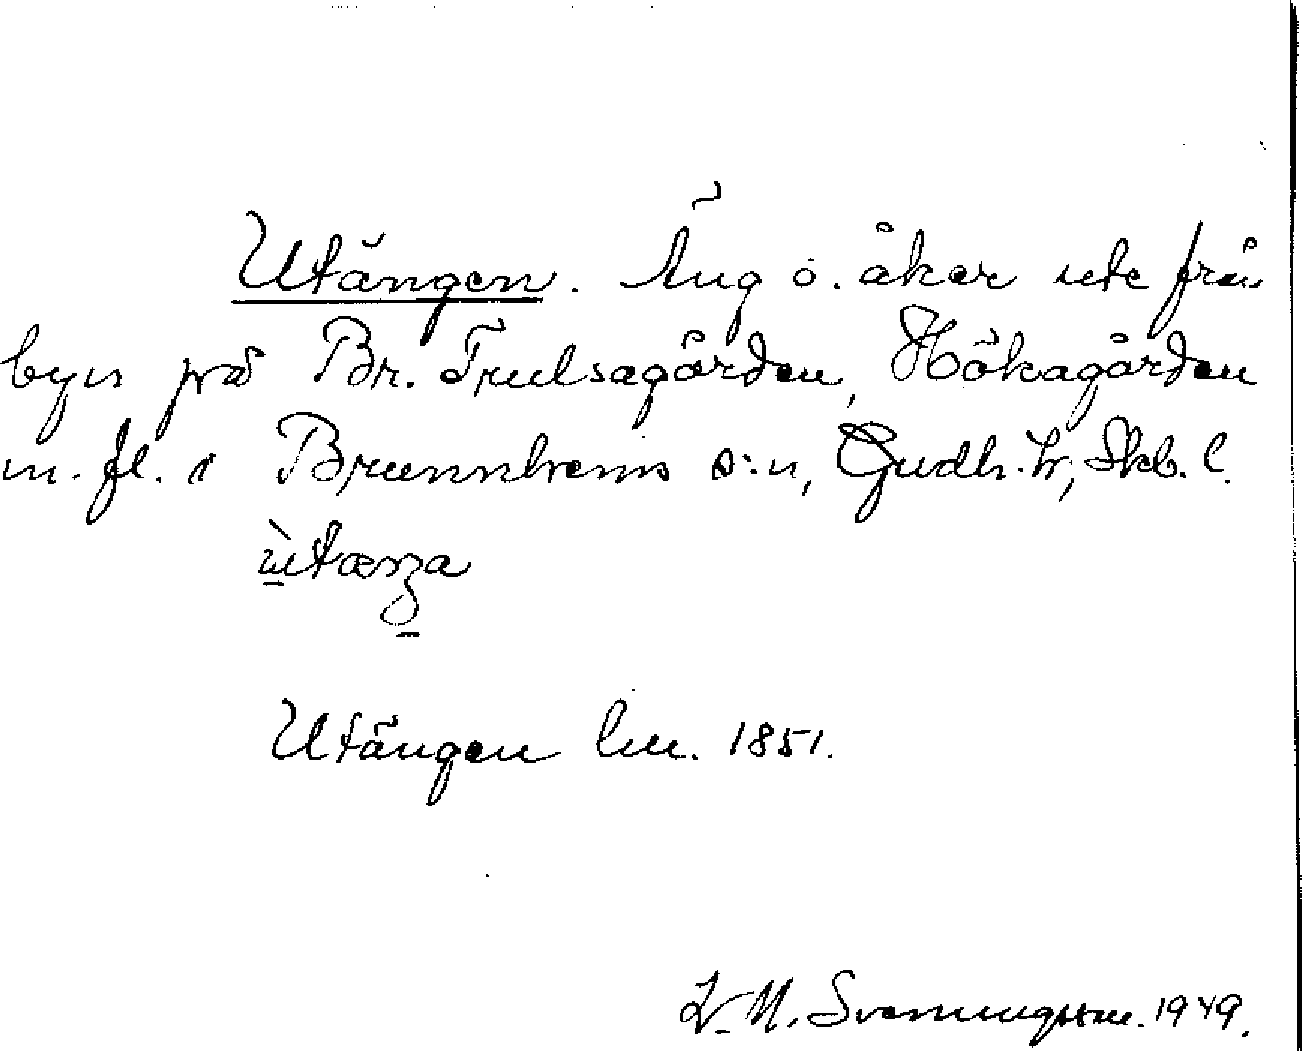 Utängen. Äng o. åker ute från
byn på Br. Trulsagården, Hökagården
m. fl. i Brunnhems s:n, Gudh. hr, Skb. l.
Utängen lm. 1851.
Svenningsson. 1949.